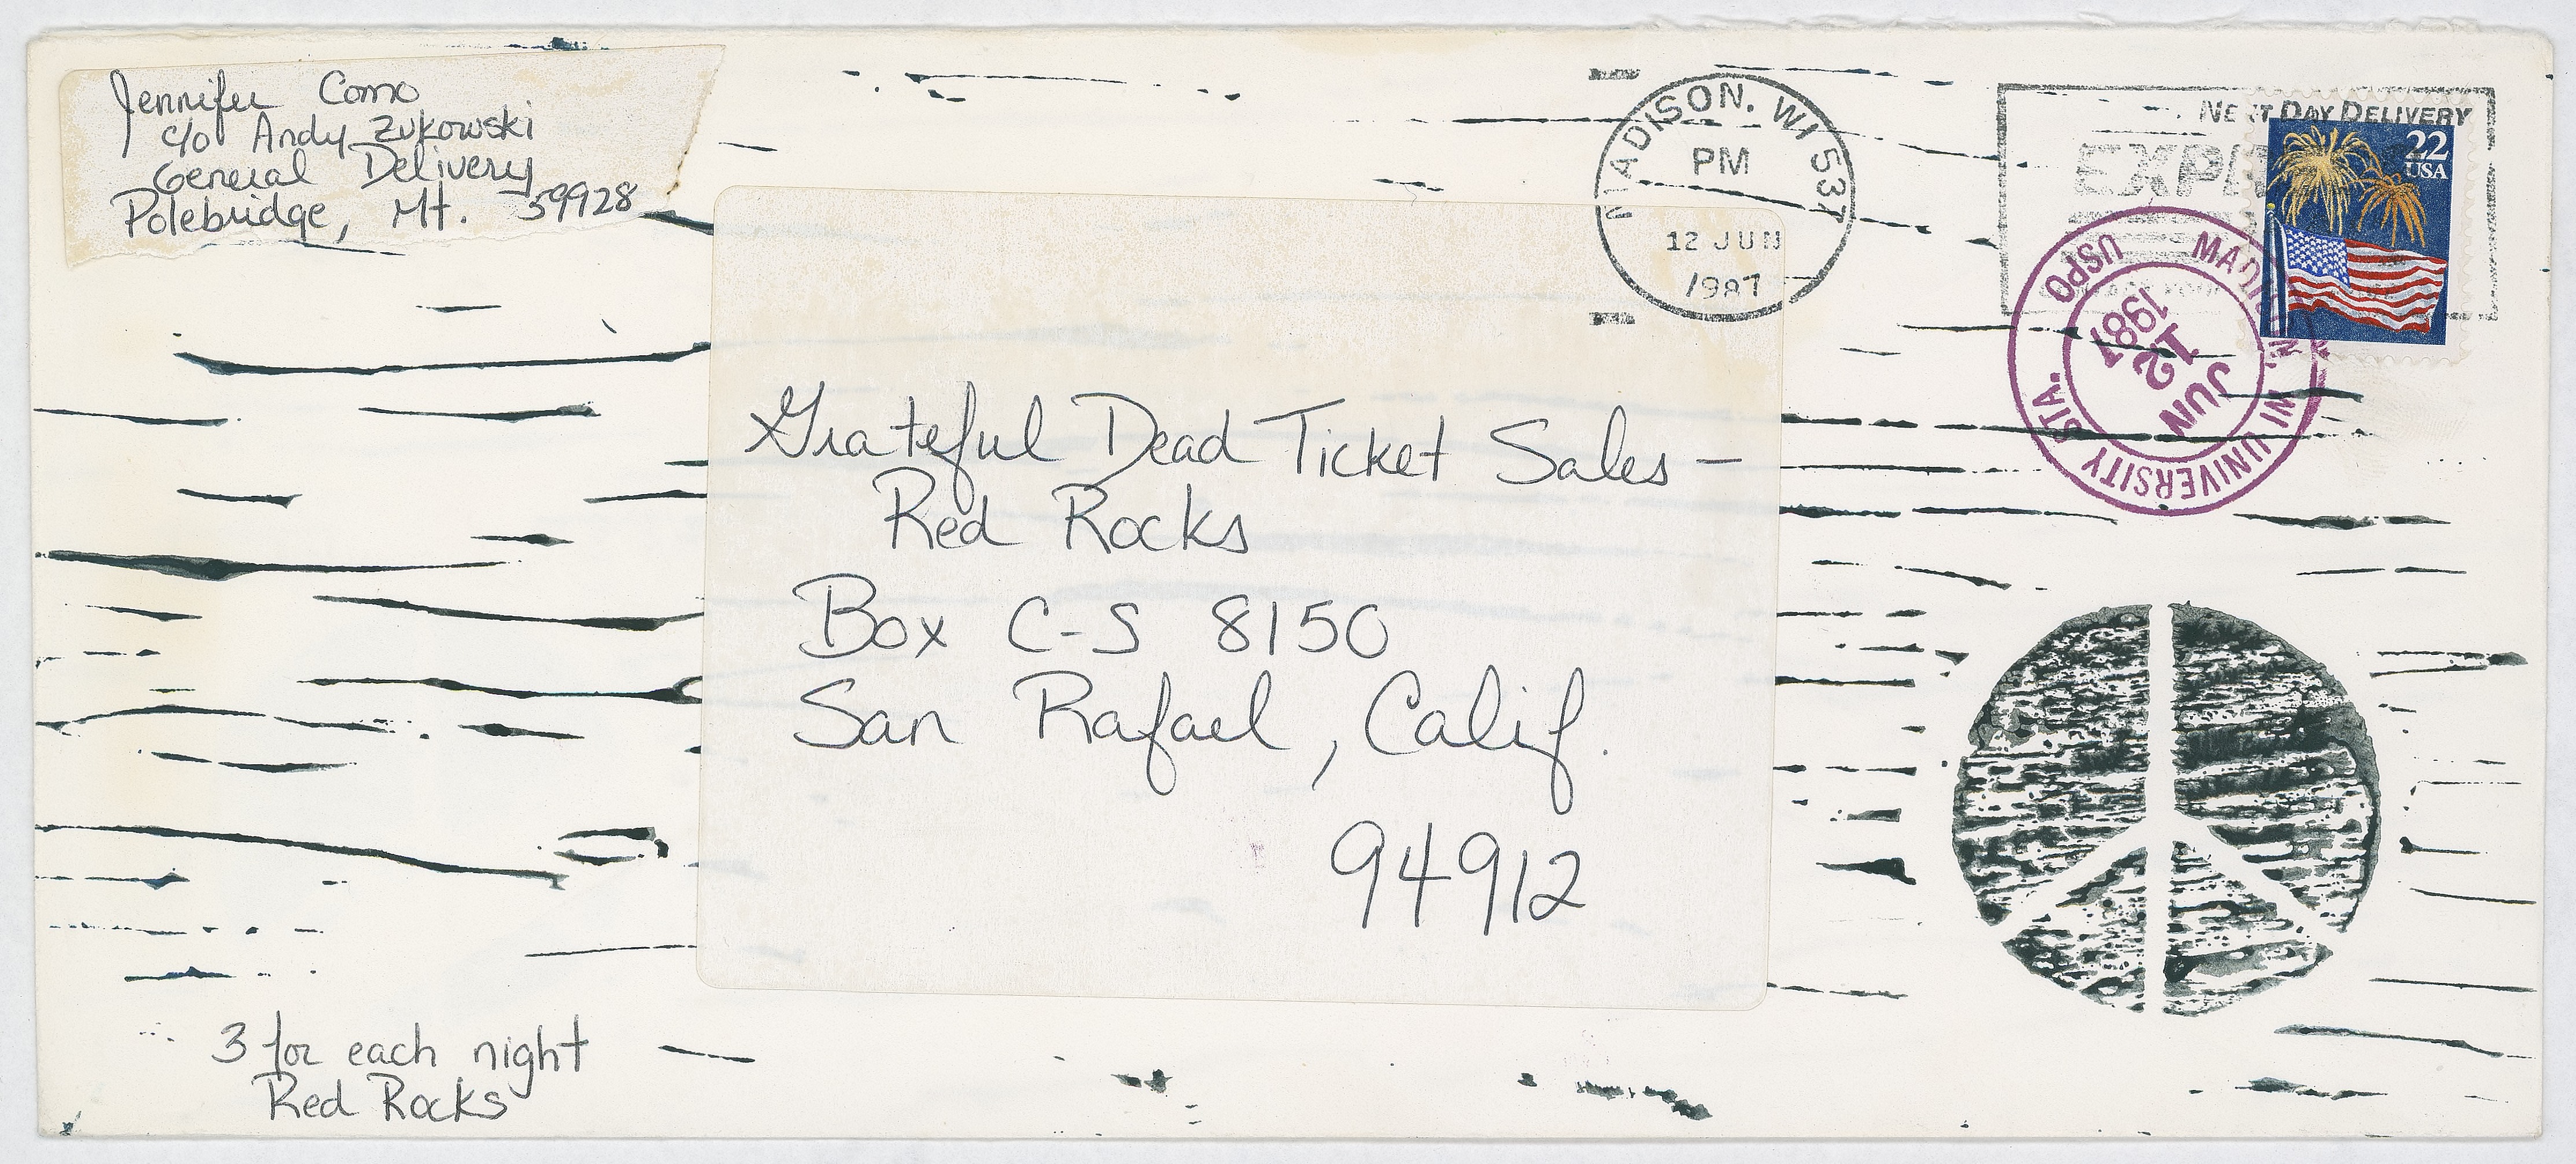 Jennifer Como
c/o Andy Zukowski
General Delivery
Polebridge, Mt. 59928
MADISON, WI 537
PM
12 JUN
1987
NEXT DAY DELIVERY
22
USA
USPO MADISON, WI UNIVERSITY STA.
JUN
12
1987
Grateful Dead Ticket Sales -
Red Rocks
Box C-S 8150
San Rafael, Calif.
94912
3 for each night
Red Rocks